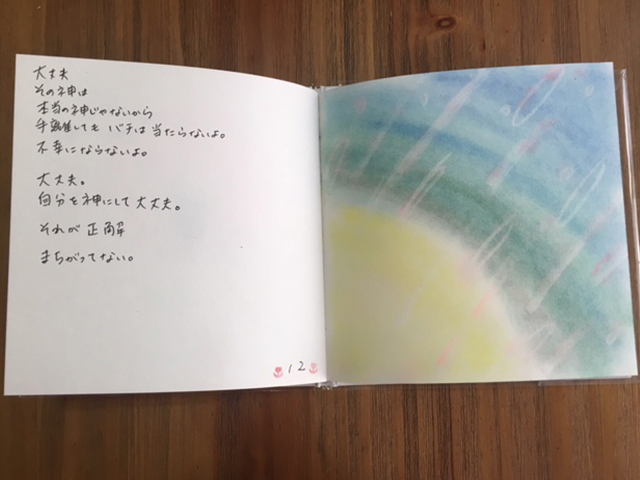 大丈夫
その神は
本当の神じゃないから
手離しても バチは 当たらないよ。
不幸にならないよ。
大丈夫。
自分を神にして 大丈夫。
それが 正解
まちがってない。
12